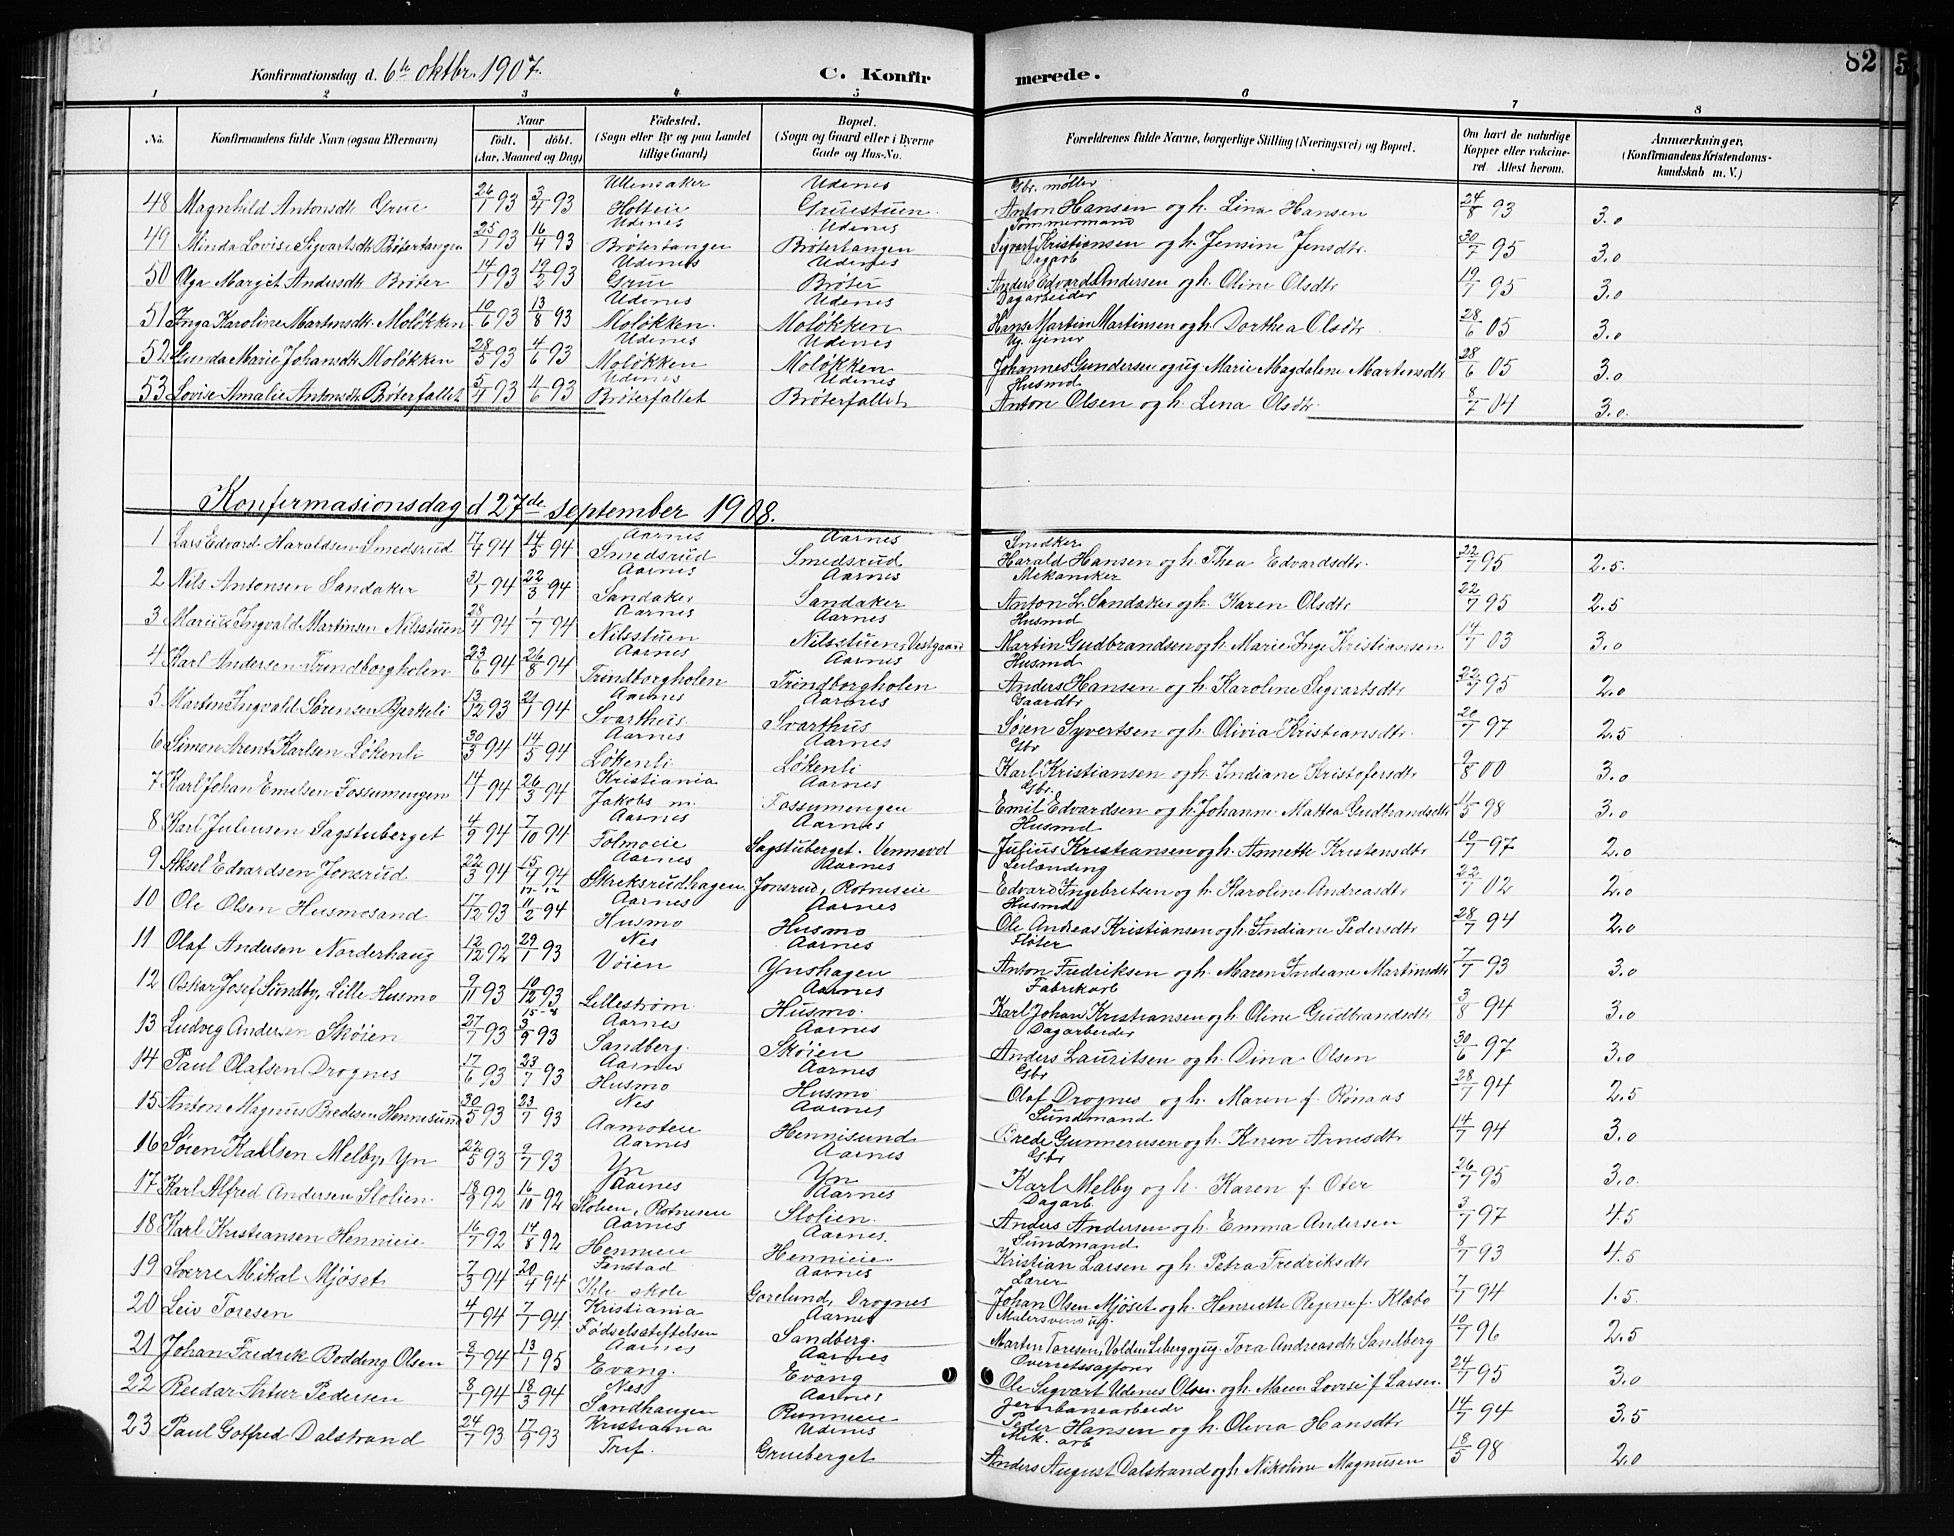 Konfirmationsdag d. 6te oktbr. 1907.
C. Konfirmerede.
82
1 2 3 4 5 6 7 8
No. | Konfirmandens fulde Navn (ogsaa Efternavn) | Naar født. døbt. (Aar, Maaned og Dag) | Fødested. (Sogn eller By og paa Landet tillige Gaard) | Bopæl. (Sogn og Gaard eller i Byerne Gade og Hus-No. | Forældrenes fulde Navne, borgerlige Stilling (Næringsvei) og Bopæl. | Om havt de naturlige Kopper eller vakcineret Attest herom. | Anmærkninger. (Konfirmandens Kristendomskundskab m. V.)
48 Magnhild Antonsdtr Grue 26/1 93 3/4 93 Ullensaker Holteie Udenes Gruestuen Gbr. møller Anton Hansen og h. Lina Hansen 24/8 93 3.0
49 Minda Lovise Sigvartsdtr Brøtertangen 25/1 93 16/4 93 Udenes Brøtertangen Udenes Brøtertangen Tømmermand Sigvart Kristiansen og h. Jensine Jensdtr. 30/7 95 3.0
50 Olga Margit Andersdtr Brøter 14/1 93 19/2 93 Udenes Grue Udenes Brøter Dagarb Anders Edvard Andersen og h. Oline Olsdtr 19/7 95 3.0
51 Inga Karoline Martinsdtr. Moløkken 10/6 93 13/8 93 Udenes Moløkken. Udenes Moløkken Dagarbeider Hans Martin Martinsen og h. Dorthea Olsdtr 28/6 05 3.0
52 Gunda Marie Johansdtr Moløkken 28/5 93 4/6 93 Udenes Moløkken Udenes Moløkken Ug. tjener Johannes Gundersen og ug. Marie Magdalene Martinsdtr 28/6 05 3.0
53 Lovise Amalie Antonsdtr Brøterfallet 5/4 93 4/6 93 Udenes Brøterfallet Udenes Brøterfallet Husmd Anton Olsen og h. Lina Olsdtr. 8/7 04 3.0.
Konfirmasionsdag d 27de september 1908.
1 Lars Edvard Haraldsen Smedsrud 17/4 94 14/5 94 Aarnes Smedsrud Aarnes Smedsrud Snedker Harald Hansen og h. Thea Edvardsdtr. 22/7 95 2.5.
2 Nils Antonsen Sandaker 31/1 94 22/3 94 Aarnes Sandaker Aarnes Sandaker Mekaniker Anton L. Sandaker og h. Karen Olsdtr 22/7 95 2.5
3 Marius Ingvald Martinsen Nilsstuen 28/4 94 1/7 94 Aarnes Nilsstuen Aarnes Nilsstuen, Vestgaard Husmd Martin Gudbrandsen og h. Marie Inge Kristiansen 14/7 03 3.0
4 Karl Andersen Trindborgholen 23/6 94 26/8 94 Aarnes Trindborgholen Aarnes Trindborgholen Husmd Anders Hansen og h. Karoline Sigvartsdtr 22/7 95 2.0
5 Martin Ingvald Sørensen Bjerkeli 13/12 93 21/1 94 Aarnes Svarthus. Aarnes Svarthus Gaardbr Søren Syvertsen og h. Olivia Kristiansdtr. 20/7 97 2.5
6 Simon Arent Karlsen Løkenli 30/3 94 14/5 94 Aarnes Løkenli Aarnes Løkenli Gbr Karl Kristiansen og h. Indiane Kristofersdtr 9/8 00 3.0
7 Karl Johan Emilsen Fossumengen 14/1 94 26/3 94 Kristiania Jakobs m. Aarnes Fossumengen Gbr. Emil Edvardsen og h. Johanne Mattea Gudbrandsdtr 11/5 98 3.0
8 Karl Juliussen Sagstuberget 4/9 94 7/10 94 Aarnes Folmoeie Aarnes Sagstuberget. Vennevol Husmd Julius Kristiansen og h. Annette Kristensdtr 10/7 97 2.0
9 Aksel Edvardsen Jonsrud 22/3 94 15/4 94 Aarnes Skriksrudhagen Aarnes Jonsrud, Rotneseie Leilænding Edvard Ingebritsen og h. Karoline Andreasdtr 22/7 02 2.0
10 Ole Olsen Husmosand 17/12 93 11/2 94 Aarnes Husmo Aarnes Husmo Husmd Ole Andreas Kristiansen og h. Indiane Pedersdtr 28/7 94 2.0
11 Olaf Andersen Norderhaug 12/12 92 29/1 93 Nes Vøien Aarnes Ynshagen Fløter Anton Fredriksen og h. Maren Indiane Martinsdtr 7/7 93 3.0
12 Oskar Josef Sundby, Lille Husmo 9/11 93 10/12 93 Lillestrøm Aarnes Husmo. Fabrikarb Karl Johan Kristiansen og h. Oline Gudbrandsdtr 3/8 94 3.0
13 Ludvig Andersen Skøien 27/7 93 3/9 93 Aarnes Sandberg. Aarnes Skøien Dagarbeider Anders Lauritsen og h. Dina Olsen 30/6 97 3.0
14 Paul Olafsen Drognes 17/6 93 23/7 93 Aarnes Husmo Aarnes Husmo Gbr Olaf Drognes og h. Maren f. Rønaas 28/7 94 2.5
15 Anton Magnus Bredesen Hennisund 30/5 93 23/7 93 Nes Aamoteie Aarnes Hennisund Sundmand Brede Gunnerusen og h. Karen Arnesdtr 14/7 94 3.0
16 Søren Karlsen Melby, Yn 22/5 93 9/7 93 Aarnes Yn Aarnes Yn Gbr Karl Melby og h. Karen f. Oter 26/7 95 3.0.
17 Karl Alfred Andersen Stolien. 18/9 92 16/10 92 Aarnes Stolien, Rotneseie Aarnes Stolien. Dagarb Anders Andersen og h. Emma Andersen 3/7 97 4.5
18 Karl Kristiansen Hennieie 16/7 92 14/8 92 Aarnes Hennieie Aarnes. Hennieie Sundmand Kristian Larsen og h. Petra Fredriksdtr 8/7 93 4.5
19 Sverre Mikal Mjøset 7/3 94 20/4 94 Fenstad Ihle skole Aarnes Gorelund, Drognes Lærer Johan Olsen Mjøset og h. Henriette Regine f. Klæbo 7/7 94 1.5.
20 Leiv Toresen 4/1 94 7/1 94 Kristiania Fødselsstiftelsen Aarnes Sandberg. Malersvend ug. Martin Toresen, og ug. Tora Andreasdtr Sandberg 10/7 96 2.5
21 Johan Fredrik Bodding Olsen 8/7 94 13/1 95 Aarnes Evang. Aarnes Evang Overretssagfører Ole Sigvart Udenes Olsen og h. Maren Lovise f. Larsen. 24/7 95 3.0
22 Reidar Artur Pedersen 8/1 94 18/3 94 Nes Sandhaugen Aarnes Runnieie Jernbanearbeider Peder Hansen og h. Olivia Hansdtr 14/7 94 3.5
23 Paul Gotfred Dalstrand 24/7 93 17/9 93 Kristiania Tref. Udenes Grueberget Mek. arb Anders August Dalstrand og h Nikoline Magnusen 18/5 98 2.0